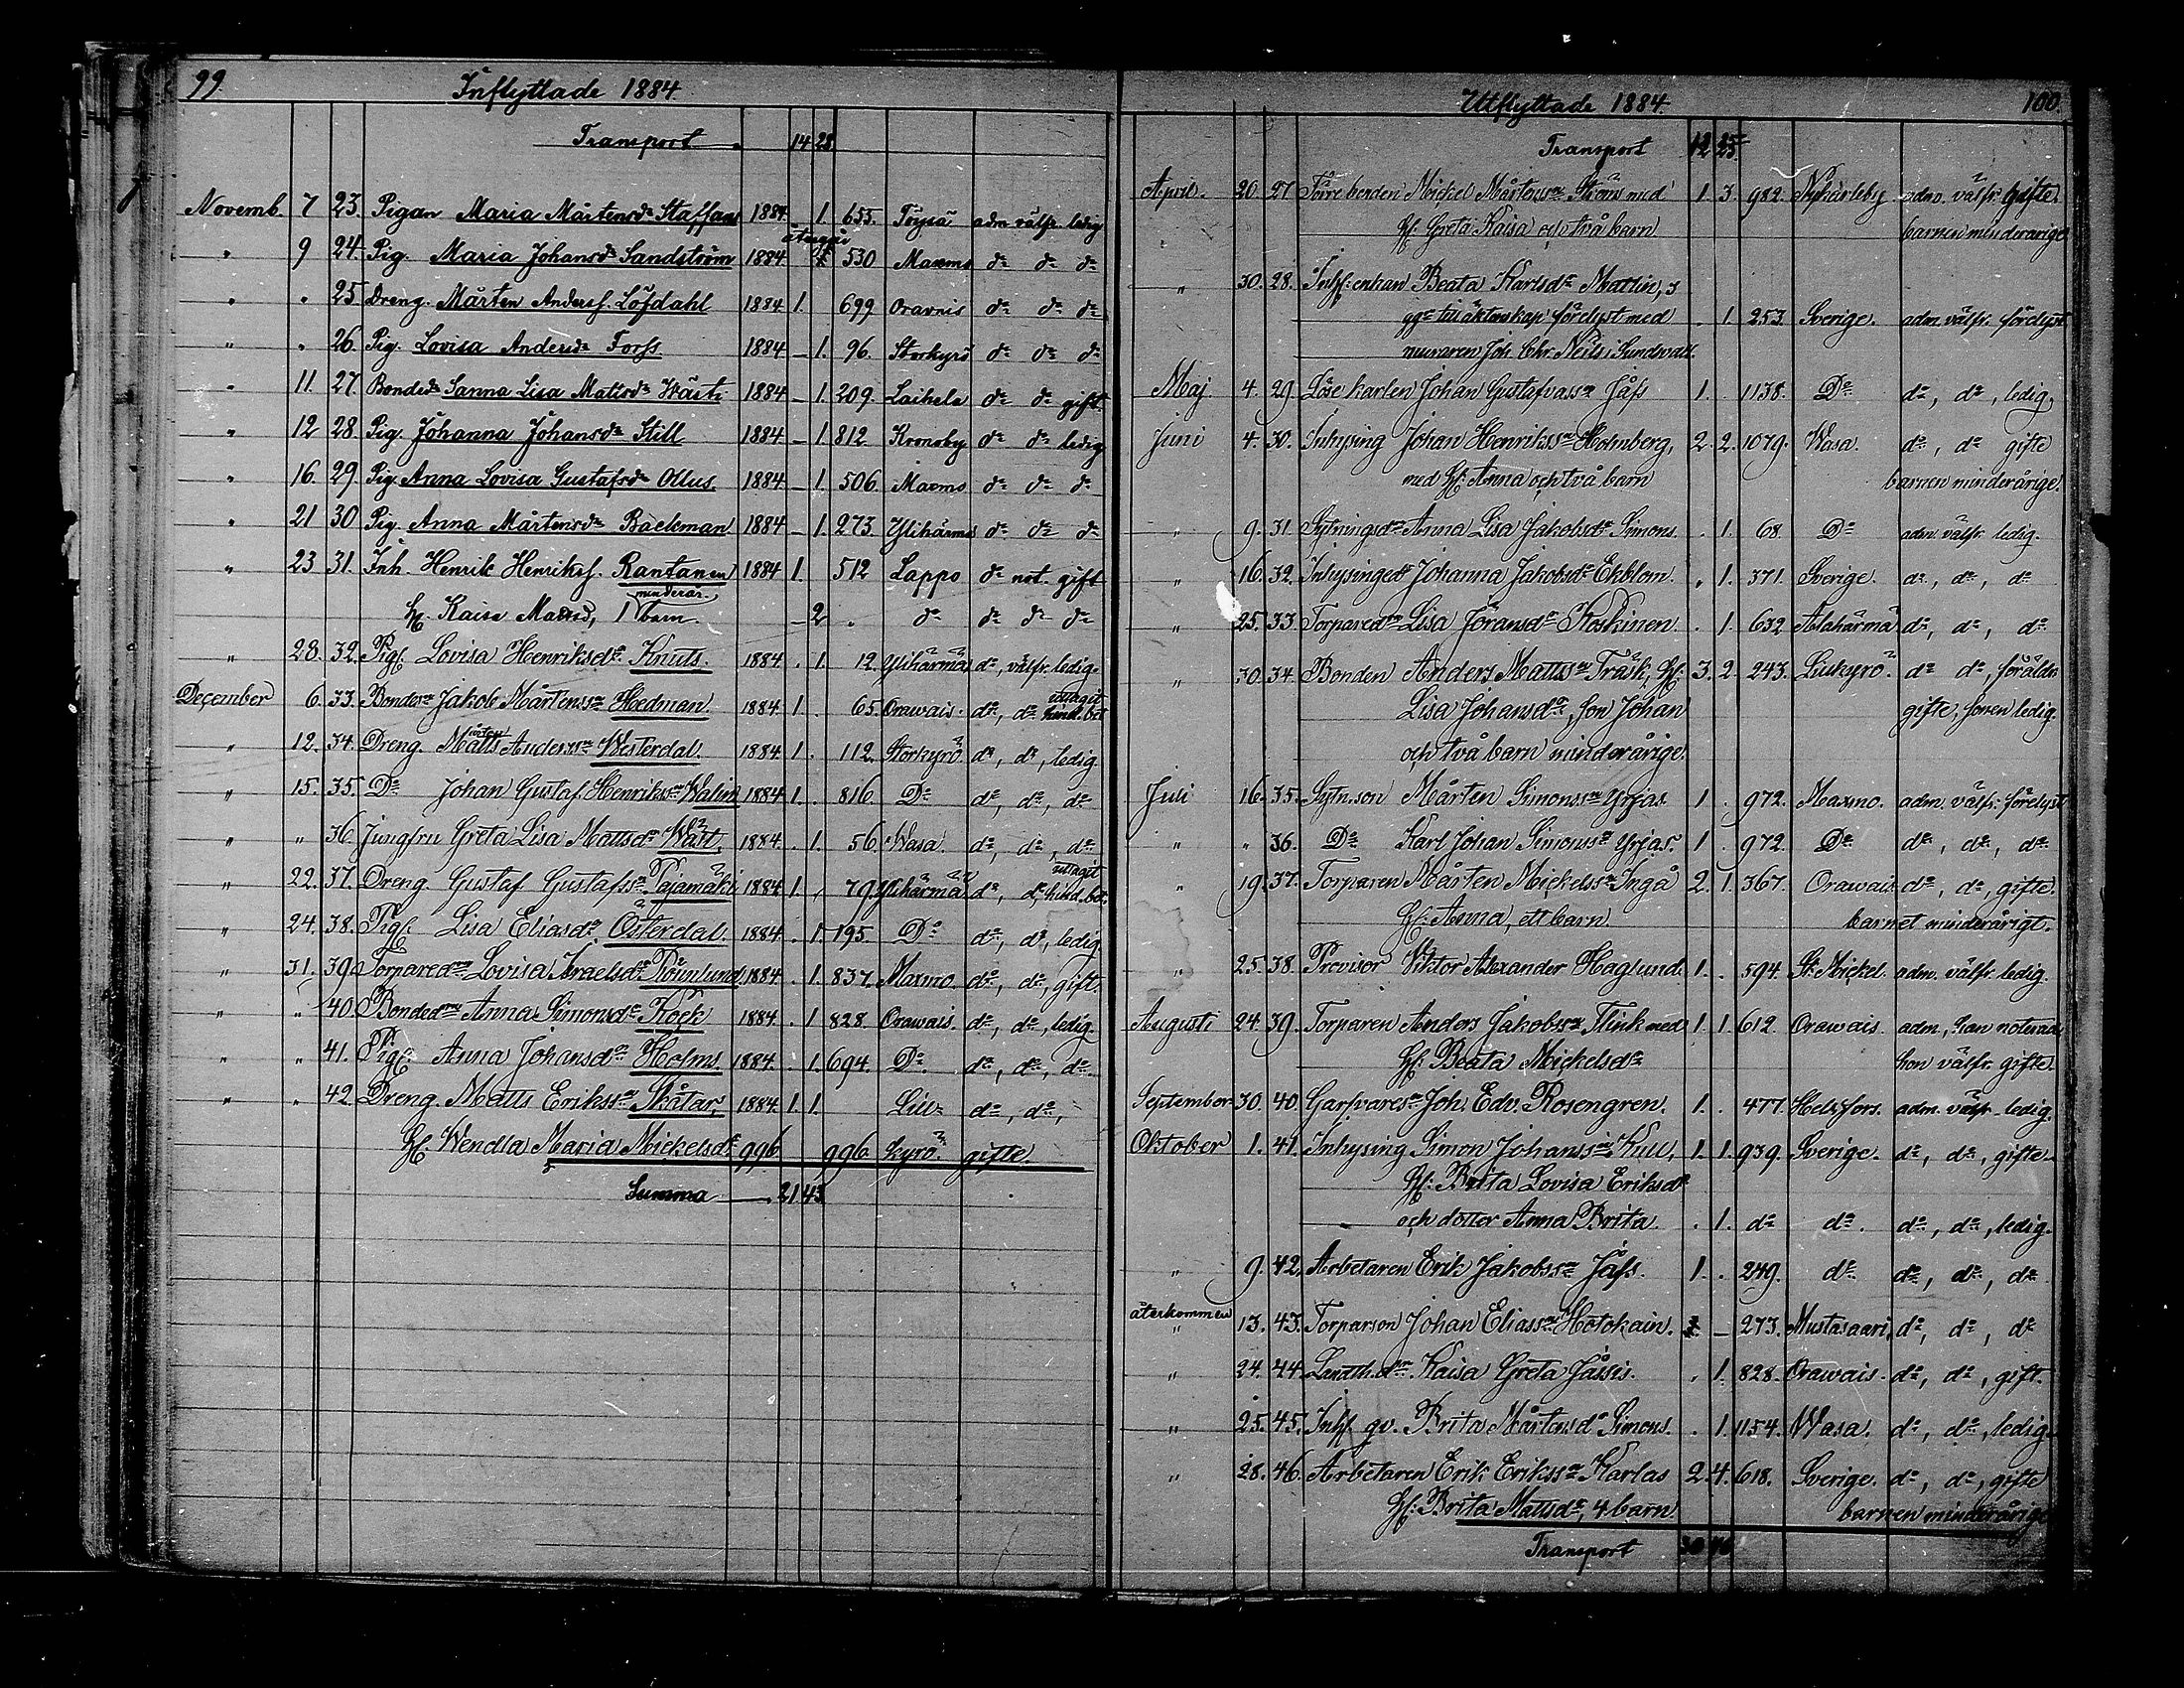 99 Inflyttade 1884
Transport 14 28
Novemb. 7 23. Pigan Maria Mårtensdr Staffans 1884 – 1. 655. Töysä adm välfr. ledig
" 9 24. Pig. Maria Johansdr Sandström 1884 återgår 1 530 Maxmo do do do
" " 25 Dreng. Mårten Andersf. Löfdahl 1884 1. 699 Oravais do do do
" " 26. Pig. Lovisa Andersdr Forss 1884 – 1. 96. Storkyrö do do do
" 11. 27. Bondedr Sanna Lisa Mattsdr Wästi 1884 – 1. 209. Laihela do do gift.
" 12 28. Pig. Johanna Johansdr Still 1884 – 1 812 Kronoby do do ledig
" 16. 29. Pig. Anna Lovisa Gustafsdr Ollus. 1884 – 1 506. Maxmo do do do
" 21 30 Pig. Anna Mårtensdr Backman 1884 – 1. 273. Ylihärmä do do do
" 23 31. Inh. Henrik Henriksf. Rantanen 1884 1. 512 Lappo do not. gift
minderår.
hf. Kaisa Mattsd, 1 barn. – 2 . do do do do
" 28. 32. Pigf. Lovisa Henriksdr Knuts. 1884 . 1. 12 Ylihärmä do, välfr. ledig.
December 6. 33. Bondesn Jakob Mårtenssn Hedman. 1884 1 . 65. Orawais. do, do uttagit hind.bet
" 12. 34. Dreng. Matts Anderssn Westerdal. 1884 1 . 112. Storkyrö do, do, ledig.
" 15. 35. Do Johan Gustaf Henrikssn Walin 1884 1 . 816. Do do, do, do
" " 36. Jungfru Greta Lisa Mattsdr Wäst. 1884. . 1. 56. Wasa. do, do, do
" 22. 37. Dreng. Gustaf Gustafssn Pajamäki 1884 1. . 79. Ylihärmä do, do, uttagit hind.bet.
" 24. 38. Pigf. Lisa Eliasdr Österdal. 1884 . 1. 195. Do do, do, ledig.
" 31. 39. Torparedr Lovisa Israelsdr Rönnlund 1884. . 1. 837. Maxmo. do, do, gift.
" " 40. Bondedr Anna Simonsdr Kock 1884. . 1 828. Orawais. do, do, ledig.
" " 41. Pigf. Anna Johansdr Holms. 1884. . 1. 694. Do. do, do, do.
" " 42. Dreng. Matts Erikssn Skåtar, 1884. 1. 1. Lill- do, do,
hf. Wendla Maria Mickelsdr 996 996. kyro. gifte.
Summa 21 43
Utflyttade 1884. 100
Transport 12 25
April. 20. 27 Förre bonden Mickel Mårtenssn Ströms med 1 3. 982. Nykarleby adm. välfr. gifte.
hf. Greta Kaisa och två barn barnen minderårige
" 30. 28. Inhys: enkan Beata Karlsdr Mattlin, 3
gge till äktenskap förelyst med . 1. 253. Sverige. adm. välfr. förelyst
muraren Joh. Chr. Neils i Sundsvall.
Maj. 4. 29. Löse karlen Johan Gustafvassn Jåfs 1. . 1138. Do do, do, ledig.
Juni 4. 30. Inhysing Johan Henrikssn Holmberg, 2. 2. 1079. Wasa. do, do gifte
med hf. Anna och två barn barnen minderårige.
" 9. 31. Sytningsdr Anna Lisa Jakobsdr Simons. . 1. 68. Do adm. välfr. ledig.
" 16. 32. Inhysingedr Johanna Jakobsdr Ekblom. . 1. 371. Sverige. do, do, do
" 25. 33. Torparedr Lisa Jöransdr Koskinen. . 1. 632 Alahärmä do, do, do
" 30. 34. Bonden Anders Mattssn Träsk, hf: 3. 2. 243. Lillkyro. do do, föräldr.
Lisa Johansdr, son Johan gifte, sonen ledig.
och två barn minderårige.
Juli 16. 35. Sytn.son Mårten Simonssn Yrjas 1 . 972. Maxmo. adm. välfr: förelyst
" " 36. Do Karl Johan Simonssn Yrjas. 1 . 972. Do do, do, do
" 19. 37. Torparen Mårten Mickelssn Ingå 2. 1. 367. Orawais. do, do, gifte.
hf: Anna, ett barn. barnet minderårigt.
" 25. 38. Provisor Viktor Alexander Haglund. 1. . 594. St. Mickel. adm. välfr. ledig.
Augusti 24. 39. Torparen Anders Jakobssn Flink med 1. 1. 612. Orawais. adm, han noterad
hf: Beata Mickelsdr hon välfr. gifte.
September 30. 40. Garfvaresn Joh. Edv. Rosengren. 1. . 477. Helsfors. adm. välfr. ledig.
Oktober 1. 41. Inhysing Simon Johanssn Kull, 1. 1. 939. Sverige. do, do, gifte.
hf: Brita Lovisa Eriksdr
och dotter Anna Brita. . 1. do do. do, do, ledig.
" 9. 42. Arbetaren Erik Jakobssn Jåfs. 1. . 249. do do, do, do
återkommen
" 13. 43. Torparson Johan Eliassn Hötokain. 1. – 273. Mustasaari, do, do, do
" 24. 44. Landth.dr Kaisa Greta Jåssis. . 1. 828. Orawais. do, do, gift.
" 25. 45. Inhf. qv. Brita Mårtensdr Simons. . 1. 1154. Wasa. do, do, ledig.
" 28. 46. Arbetaren Erik Erikssn Karlas 2. 4. 618. Sverige. do, do, gifte
hf: Brita Mattsdr, 4 barn. barnen minderårige
Transport 30 46